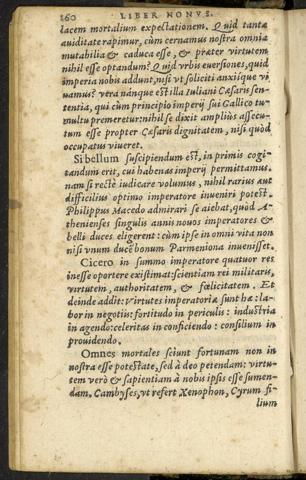 260 LIBER NONVS.
lacem mortalium expectationem. Quid tanta
auiditate rapimur, cùm cernamus nostra omnia
mutabilia & caduca esse, & præter virtutem
nihil esse optandum? Quid vrbis euersiones, quid
imperia nobis addunt, nisi vt soliciti anxiíque vi
uamus? vera nánque est illa Iuliani Cæsaris sen-
tentia, qui cùm principio imperij sui Gallico tu-
multu premeretur: nihil se dixit ampliùs assecu-
tum esse propter Cæsaris dignitatem, nisi quòd
occupatus viueret.
Si bellum suscipiendum est, in primis cogi-
tandum erit, cui habenas imperij permittamus.
nam si rectè iudicare volumus, nihil rarius aut
difficilius optimo imperatore inueniri potest.
Philippus Macedo admirari se aiebat, quòd A-
thenienses singulis annis nouos imperatores &
belli duces eligerent: cùm ipse in omni vita non
nisi vnum ducē bonum Parmeniona inuenisset.
Cicero in summo imperatore quatuor res
inesse oportere existimat: scientiam rei militaris,
virtutem, authoritatem, & fœlicitatem. Et
deinde addit: Virtutes imperatoriæ sunt hæ: la-
bor in negotiis: fortitudo in periculis: industria
in agendo: celeritas in conficiendo: consilium in
prouidendo.
Omnes mortales sciunt fortunam non in
nostra esse potestate, sed à deo petendam: virtu-
tem verò & sapientiam à nobis ipsis esse sumen-
dam. Cambyses, vt refert Xenophon, Cyrum fi-
lium